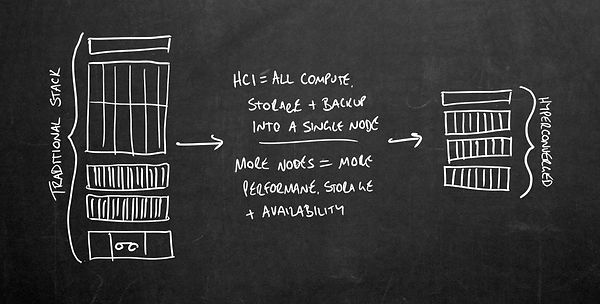 TRADITIONAL STACK
HCI = ALL COMPUTE,
STORAGE + BACKUP
INTO A SINGLE NODE
MORE NODES = MORE
PERFORMANE, STORAGE
+ AVAILABILITY
HYPERCONVERGED